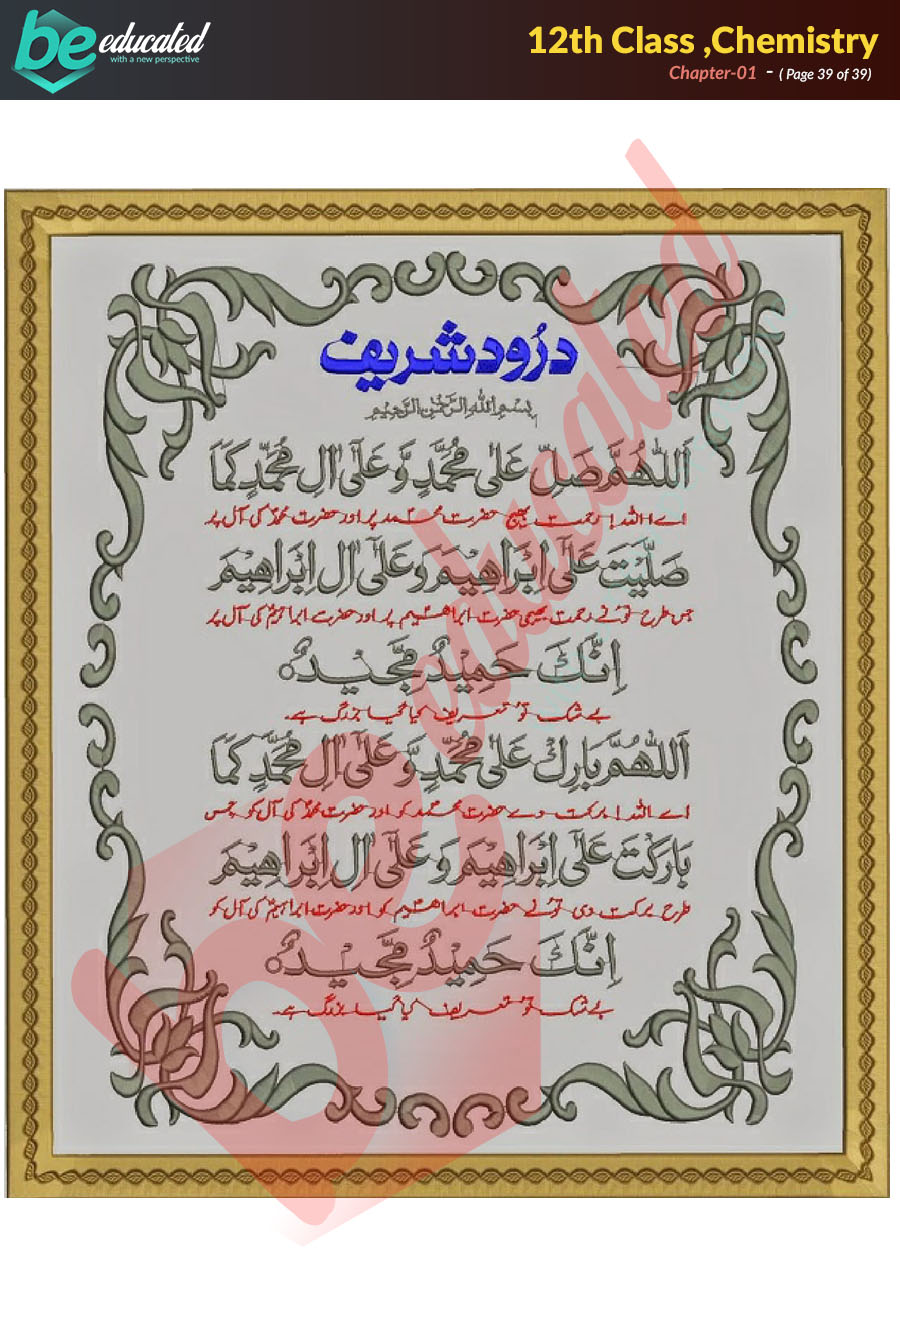 be educated
with a new perspective
12th Class ,Chemistry
Chapter-01 - ( Page 39 of 39)
درُود شریف
بِسْمِ اللهِ الرَّحْمٰنِ الرَّحِيْمِ
اَللّٰهُمَّ صَلِّ عَلٰى مُحَمَّدٍ وَّ عَلٰٓى اٰلِ مُحَمَّدٍ كَمَا
اے اللہ! رحمت بھیج حضرت محمد پر اور حضرت محمدؐ کی آل پر
صَلَّيْتَ عَلٰٓى اِبْرَاهِيْمَ وَ عَلٰٓى اٰلِ اِبْرَاهِيْمَ
جس طرح تونے رحمت بھیجی حضرت ابراھیم پر اور حضرت ابراہیمؑ کی آل پر
اِنَّكَ حَمِيْدٌ مَّجِيْدٌ ○
بے شک تو تعریف کیا گیا بزرگ ہے۔
اَللّٰهُمَّ بَارِكْ عَلٰى مُحَمَّدٍ وَّ عَلٰٓى اٰلِ مُحَمَّدٍ كَمَا
اے اللہ! برکت دے حضرت محمد کو اور حضرت محمدؐ کی آل کو جس
بَارَكْتَ عَلٰٓى اِبْرَاهِيْمَ وَ عَلٰٓى اٰلِ اِبْرَاهِيْمَ
طرح برکت دی تونے حضرت ابراھیم کو اور حضرت ابراہیمؑ کی آل کو
اِنَّكَ حَمِيْدٌ مَّجِيْدٌ ○
بے شک تو تعریف کیا گیا بزرگ ہے۔
be educated